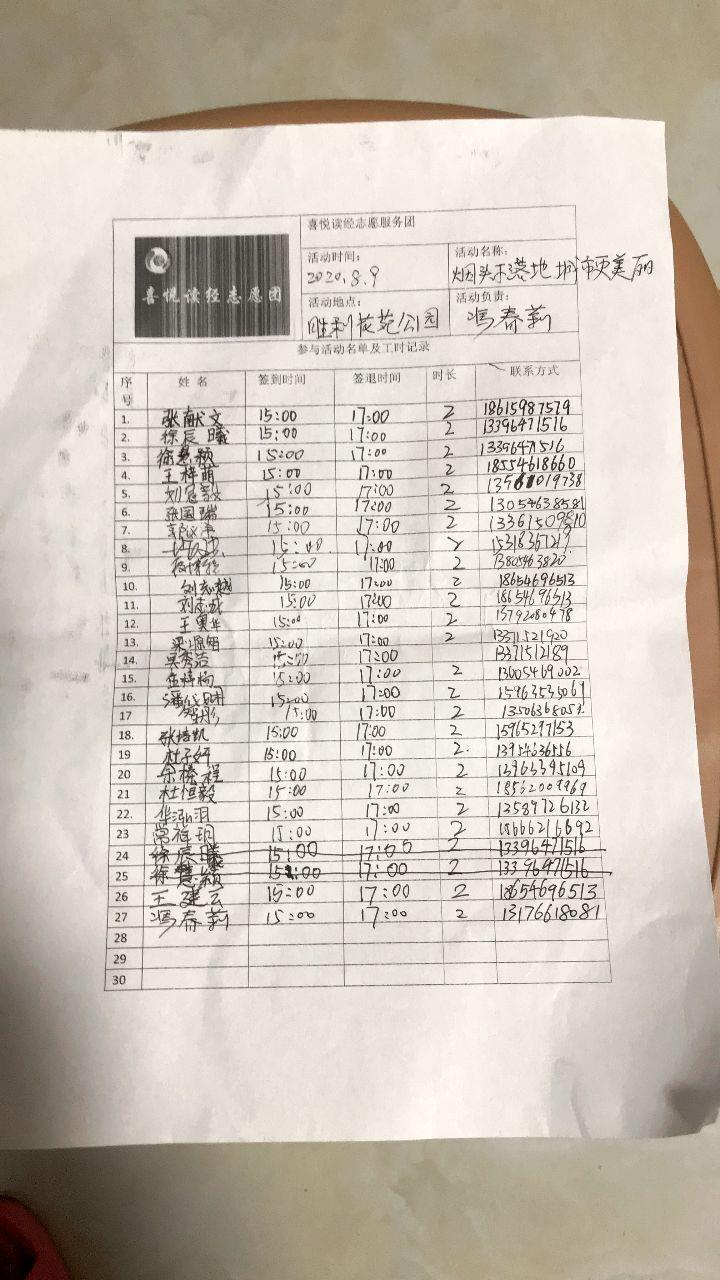 喜悦读经志愿服务团
喜悦读经志愿团
活动时间： 活动名称：
2020.8.9 烟头不落地 城市更美丽
活动地点： 活动负责：
胜利花苑公园 冯春莉
参与活动名单及工时记录
序号 姓名 签到时间 签退时间 时长 联系方式
1. 张献文 15:00 17:00 2 18615987579
2. 徐辰曦 15:00 17:00 2 13396471516
3. 徐慧颖 15:00 17:00 2 13396471516
4. 王梓萌 15:00 17:00 2 18554618660
5. 15:00 17:00 2
6. 张国瑞 15:00 17:00 2 13054638581
7. 15:00 17:00 2
8. 15:00 17:00 2
9. 15:00 17:00 2 13805463820
10. 刘志越 15:00 17:00 2 18654696513
11. 刘志成 15:00 17:00 2 18654696513
12. 王昊华 15:00 17:00 2 13792080478
13. 15:00 17:00 2 13371521920
14. 吴秀洁 15:00 17:00 13371512189
15. 15:00 17:00 2 13005469002
16. 15:00 17:00 2 15963535069
17 15:00 17:00 2
18. 张培凯 15:00 17:00 2 15965297153
19 杜子妍 15:00 17:00 2. 13954636556
20 15:00 17:00 2
21 杜恒毅 15:00 17:00 2
22. 华泓羽 15:00 17:00 2 13589726132
23 常祥玥 15:00 17:00 2 18666216692
24 徐辰曦 15:00 17:00 2 13396471516
25 徐慧颖 15:00 17:00 2 13396471516
26 王建云 15:00 17:00 2 18654696513
27 冯春莉 15:00 17:00 2 13176618081
28
29
30